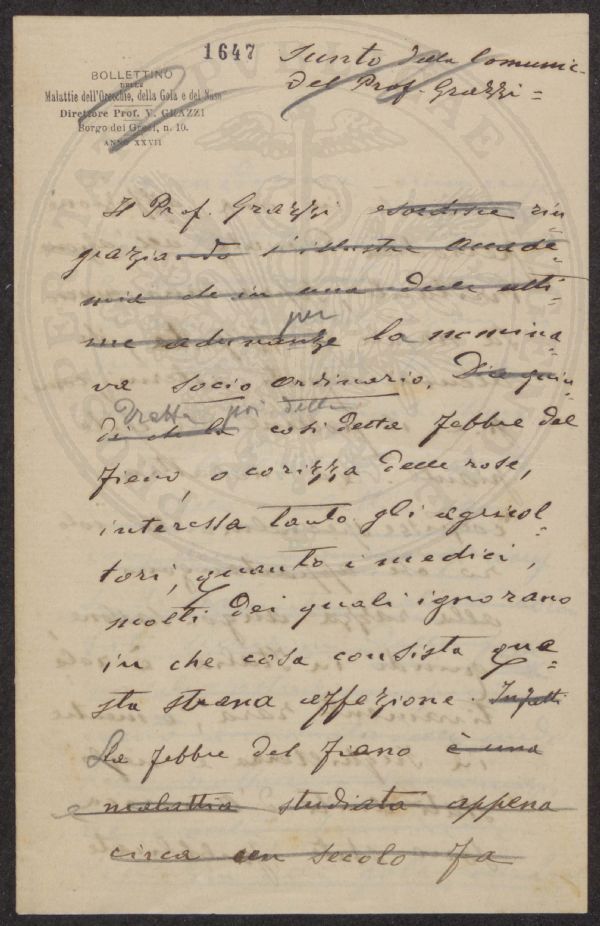 1647
Sunto della Comunic-
del Prof. Grazzi =
BOLLETTINO
DELLE
Malattie dell'Orecchio, della Gola e del Naso
Direttore Prof. V. GRAZZI
Borgo dei Greci, n. 10.
ANNO XXVII
Il Prof. Grazzi esordisce rin-
graziando l'illustre Accade-
mia che in una delle ulti-
per
me adunanze la nomina-
va socio ordinario. Dice quin-
Tratta poi della
di che la così detta febbre del
fieno, o corizza delle rose,
interessa tanto gli agricol-
tori, quanto i medici,
molti dei quali ignorano
in che cosa consista que-
sta strana affezione. Infatti
La febbre del fieno è una
malattia studiata appena
circa un secolo fa